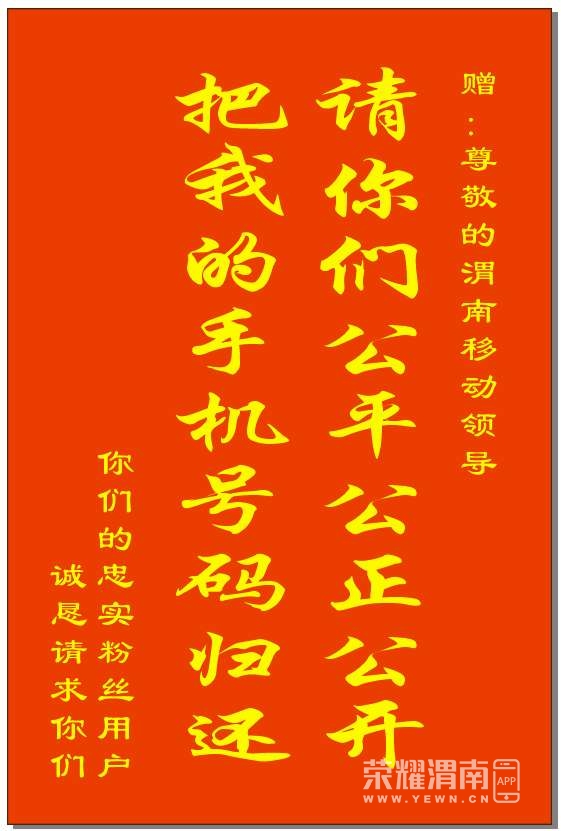 赠:尊敬的渭南移动领导
请你们公平公正公开
把我的手机号码归还
你们的忠实粉丝用户
诚恳请求你们
荣耀渭南
APP
WWW.YEWN.CN